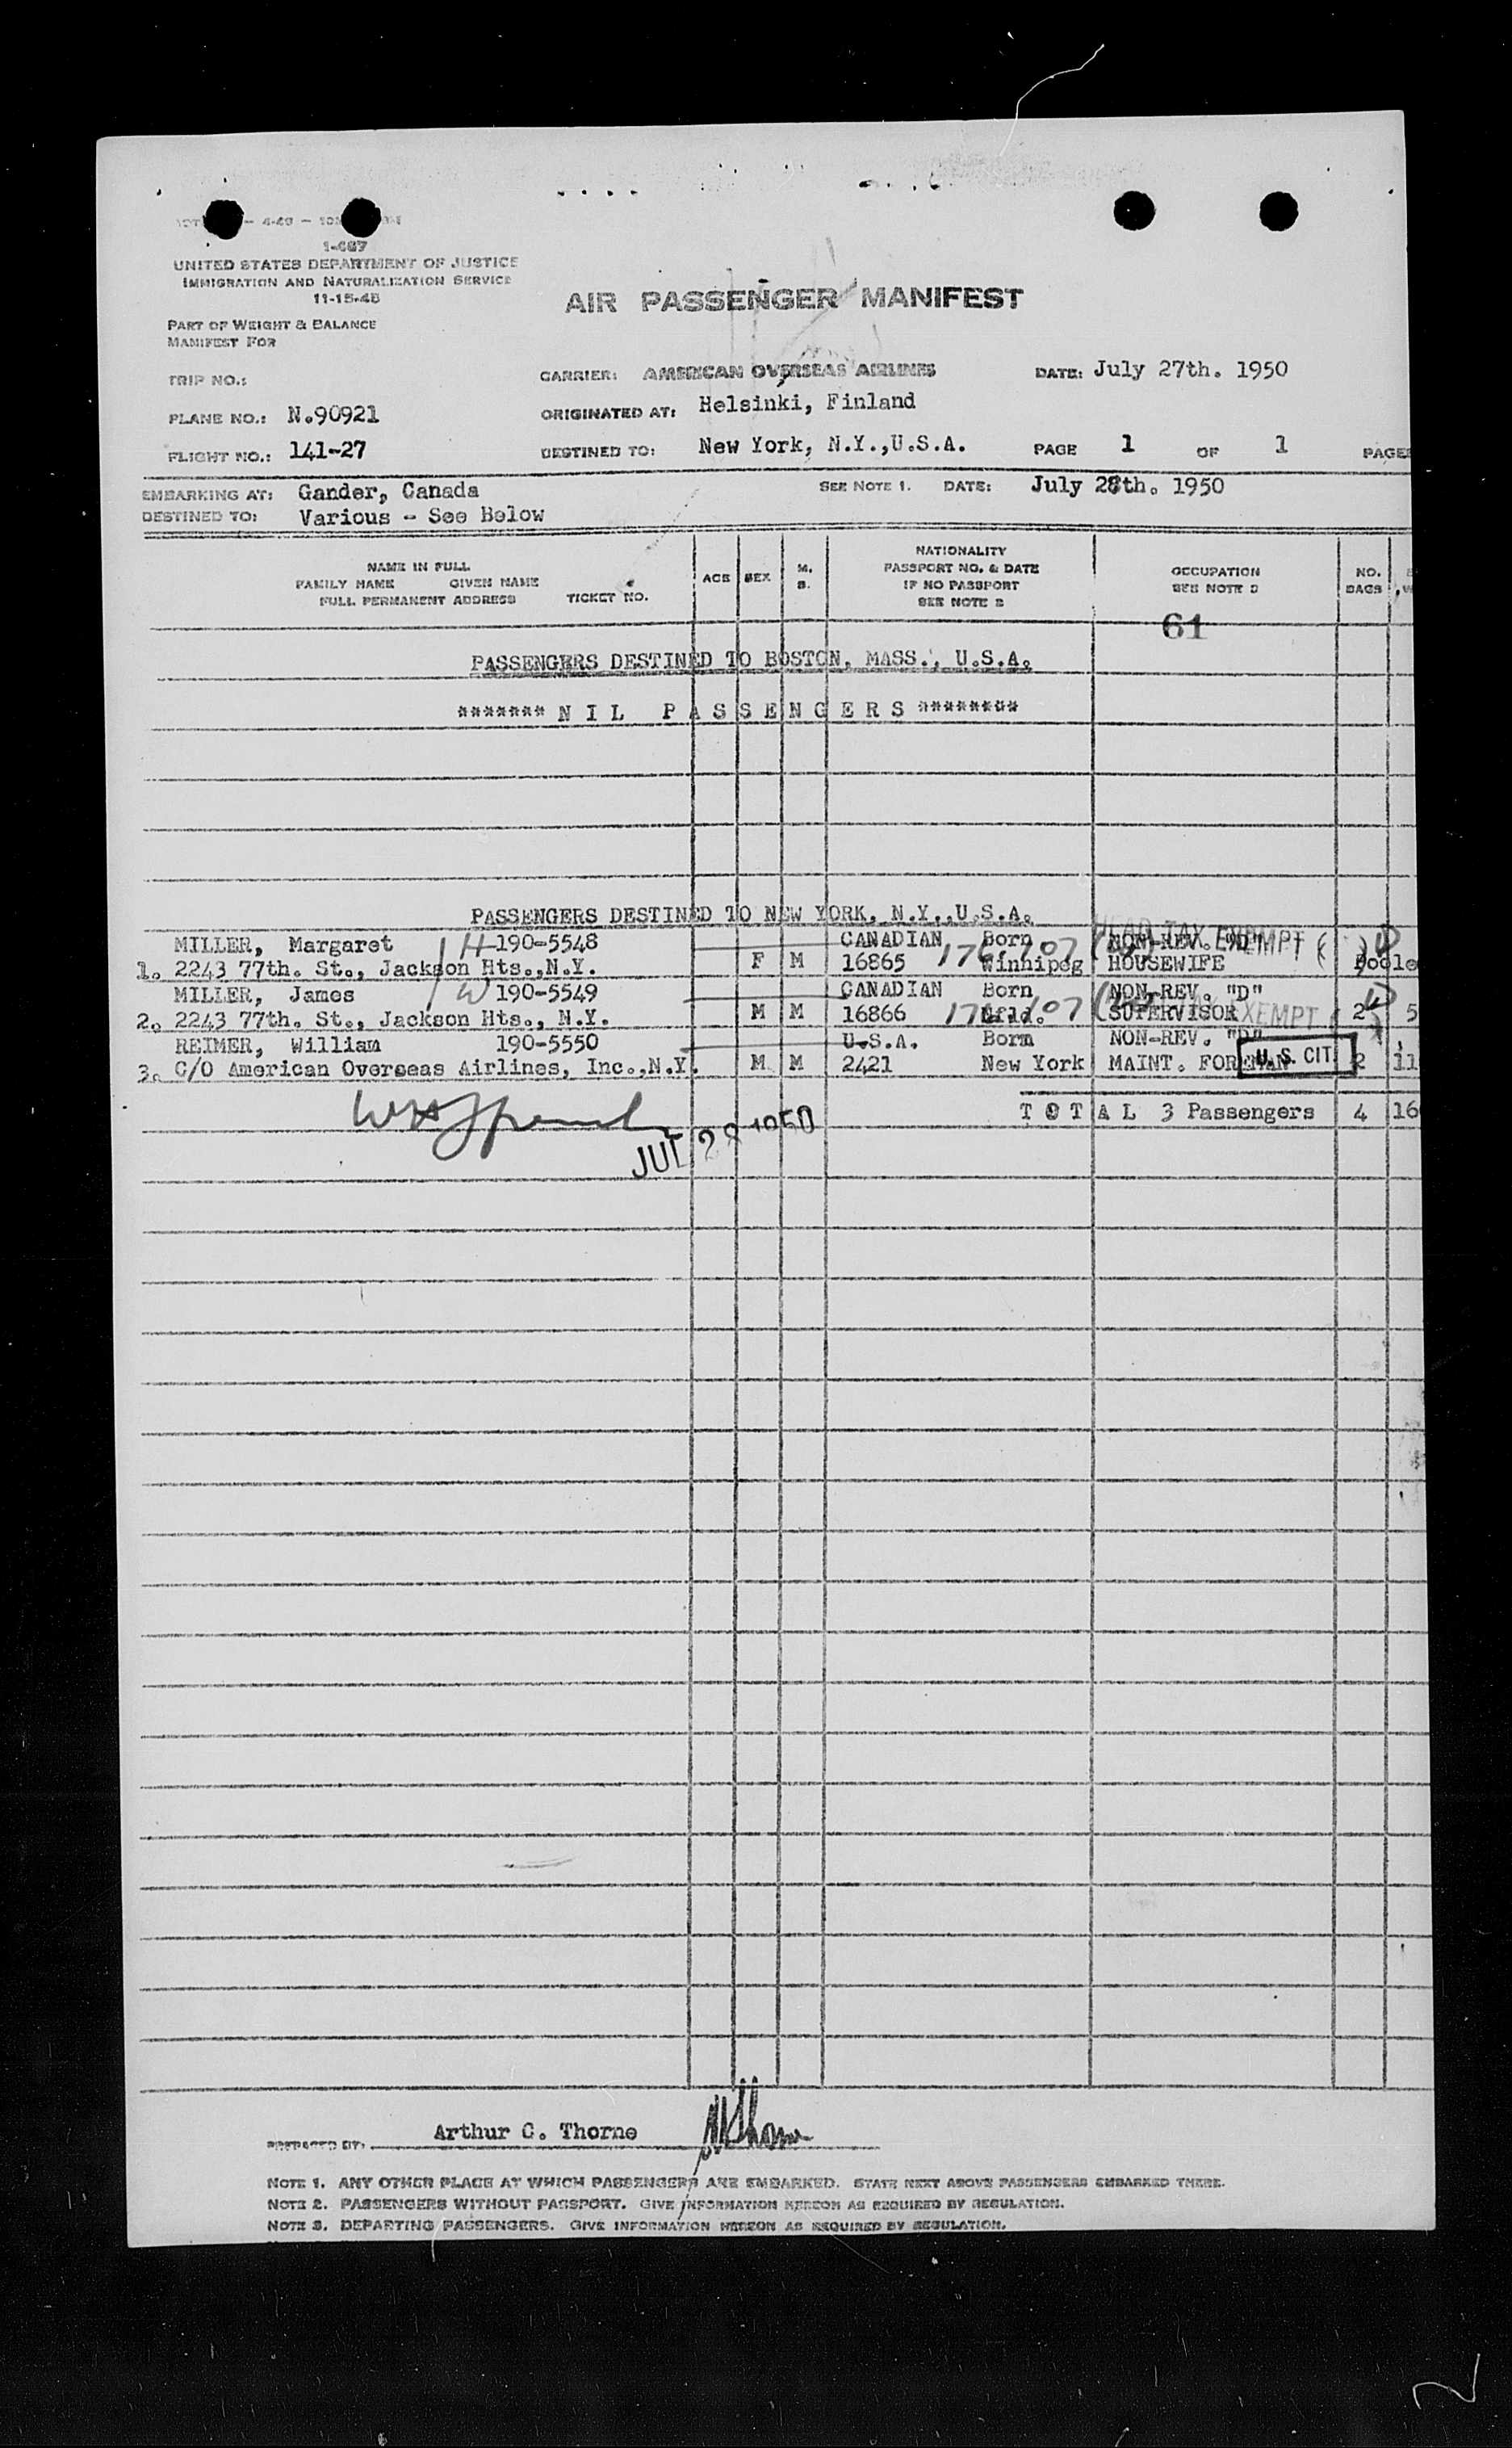 1-487
UNITED STATES DEPARTMENT OF JUSTICE
IMMIGRATION AND NATURALIZATION SERVICE
11-15-48
AIR PASSENGER MANIFEST
PART OF WEIGHT & BALANCE
MANIFEST FOR
TRIP NO.:
CARRIER: AMERICAN OVERSEAS AIRLINES
DATE: July 27th. 1950
PLANE NO.: N.90921
ORIGINATED AT: Helsinki, Finland
FLIGHT NO.: 141-27
DESTINED TO: New York, N.Y.,U.S.A.
PAGE 1 OF 1 PAGES
EMBARKING AT: Gander, Canada
SEE NOTE 1. DATE: July 28th. 1950
DESTINED TO: Various - See Below
NAME IN FULL
FAMILY NAME GIVEN NAME
FULL PERMANENT ADDRESS TICKET NO.
AGE SEX M. S.
NATIONALITY
PASSPORT NO. & DATE
IF NO PASSPORT
SEE NOTE 2
OCCUPATION
SEE NOTE 3
NO.
BAGS
61
PASSENGERS DESTINED TO BOSTON, MASS., U.S.A.
******* N I L P A S S E N G E R S ********
PASSENGERS DESTINED TO NEW YORK, N.Y.,U.S.A.
HEAD TAX EXEMPT
MILLER, Margaret H 190-5548 CANADIAN Born NON-REV. "D"
1. 2243 77th. St., Jackson Hts.,N.Y. F M 16865 Winnipeg HOUSEWIFE Poole
MILLER, James W 190-5549 CANADIAN Born NON-REV. "D"
2. 2243 77th. St., Jackson Hts., N.Y. M M 16866 Nfld. SUPERVISOR EXEMPT 2 5
REIMER, William 190-5550 U.S.A. Born NON-REV. "D"
3. C/O American Overseas Airlines, Inc.,N.Y. M M 2421 New York MAINT. FOREMAN U.S. CIT. 2 11
T O T A L 3 Passengers 4 16
JUL 28 1950
PREPARED BY: Arthur C. Thorne
NOTE 1. ANY OTHER PLACE AT WHICH PASSENGERS ARE EMBARKED. STATE NEXT ABOVE PASSENGERS EMBARKED THERE.
NOTE 2. PASSENGERS WITHOUT PASSPORT. GIVE INFORMATION HEREON AS REQUIRED BY REGULATION.
NOTE 3. DEPARTING PASSENGERS. GIVE INFORMATION HEREON AS REQUIRED BY REGULATION.
2